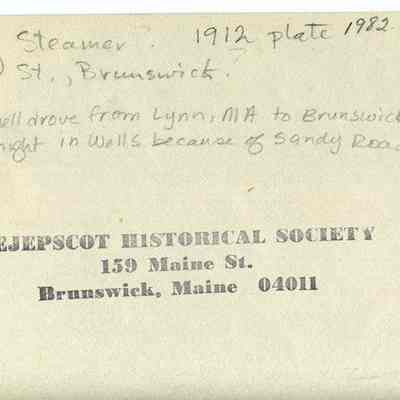 Steamer. 1912 plate 1982.
) St., Brunswick.
ell drove from Lynn, MA to Brunswick
night in Wells because of Sandy Road
EJEPSCOT HISTORICAL SOCIETY
159 Maine St.
Brunswick, Maine 04011